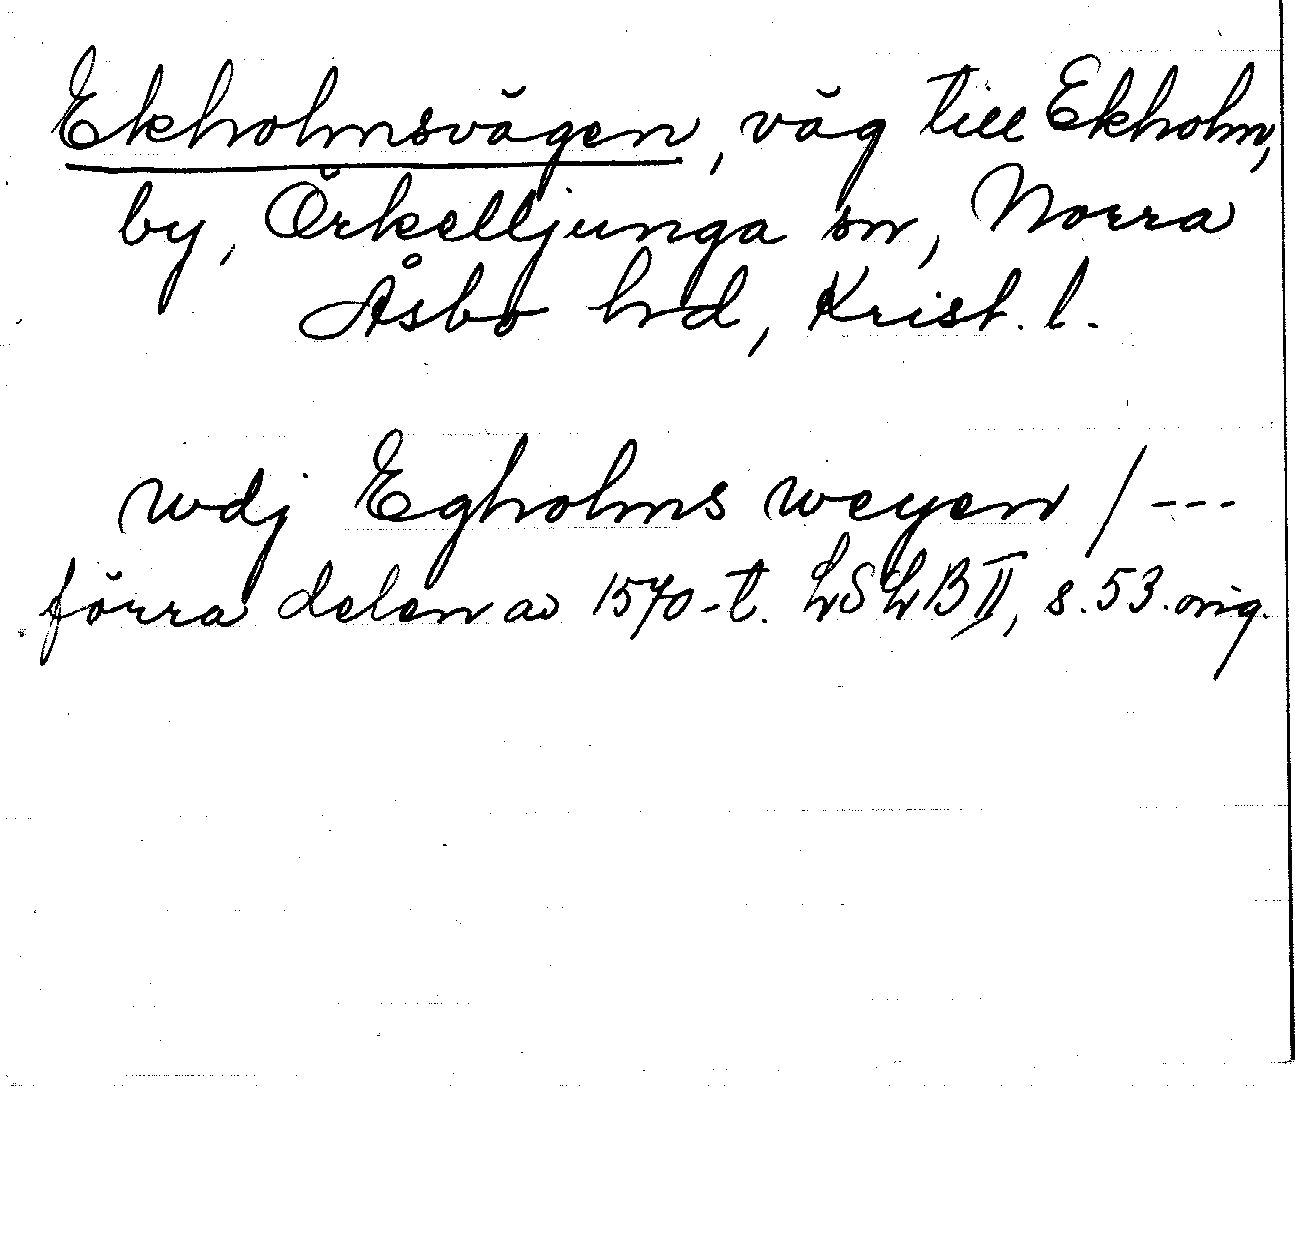 Ekholmsvägen, väg till Ekholm,
by, Örkelljunga sn, Norra
Åsbo hd, Krist. l.
wdj Egholms weyen / ---
förra delen av 1570-t. LSLB II, s. 53. orig.